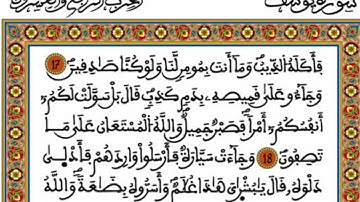 سورة يوسف
فَأَكَلَهُ الذِّيبُ وَمَا أَنتَ بِمُومِنٍ لَّنَا وَلَوْ كُنَّا صَٰدِقِينَ 17
وَجَآءُو عَلَىٰ قَمِيصِهِۦ بِدَمٍ كَذِبٍ قَالَ بَلْ سَوَّلَتْ لَكُمُۥٓ
أَنفُسُكُمُۥٓ أَمْراً فَصَبْرٌ جَمِيلٌ وَاللَّهُ الْمُسْتَعَانُ عَلَىٰ مَا
تَصِفُونَ 18 وَجَآءَتْ سَيَّارَةٌ فَأَرْسَلُواْ وَارِدَهُمْ فَأَدْلَىٰ
دَلْوَهُۥ قَالَ يَٰبُشْرَٰىَ هَٰذَا غُلَٰمٌ وَأَسَرُّوهُ بِضَٰعَةً وَاللَّهُ